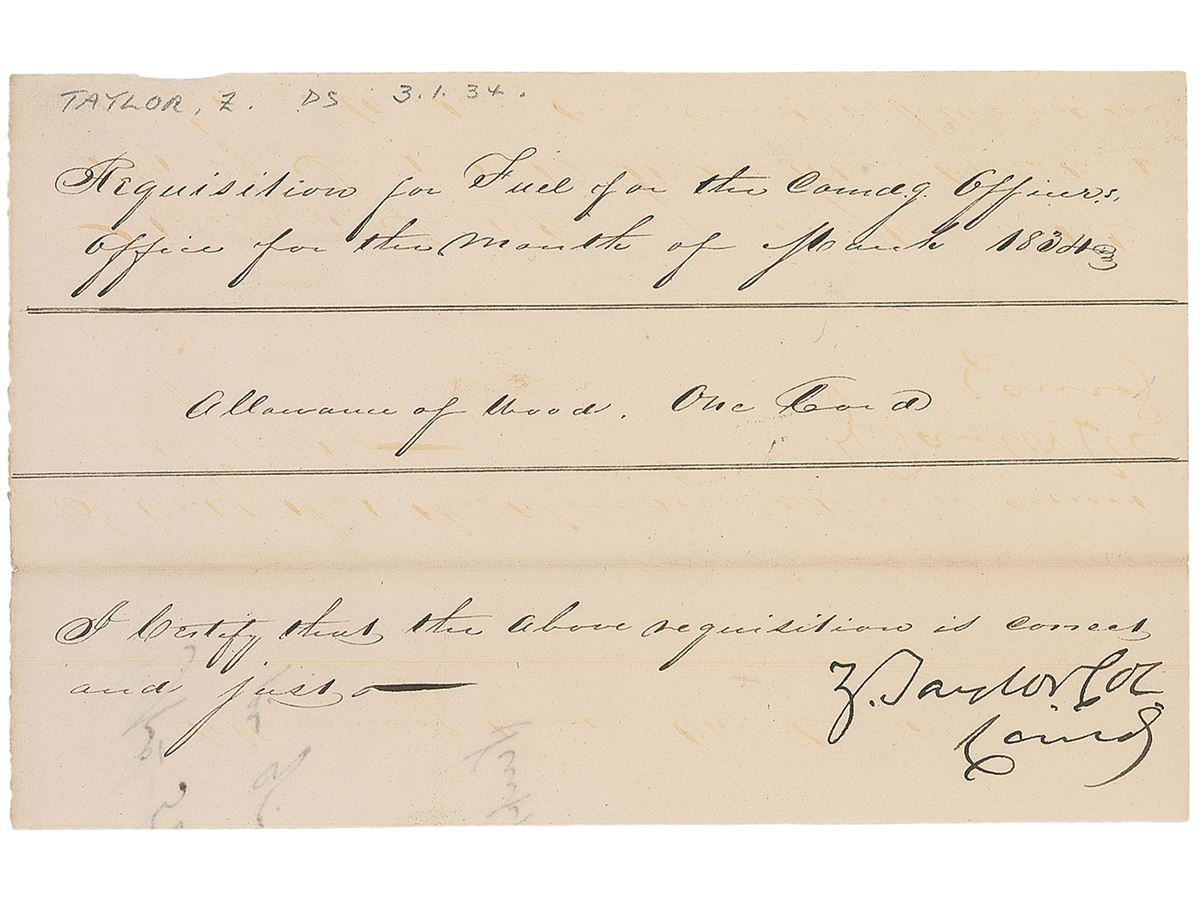 TAYLOR, Z. DS 3.1.34.
Requisition for Fuel for the Comdg. Officers.
Office for the Month of March 1834
Allowance of Wood. One Cord
I Certify that the above requisition is correct
and just
Z. Taylor Col
Comd